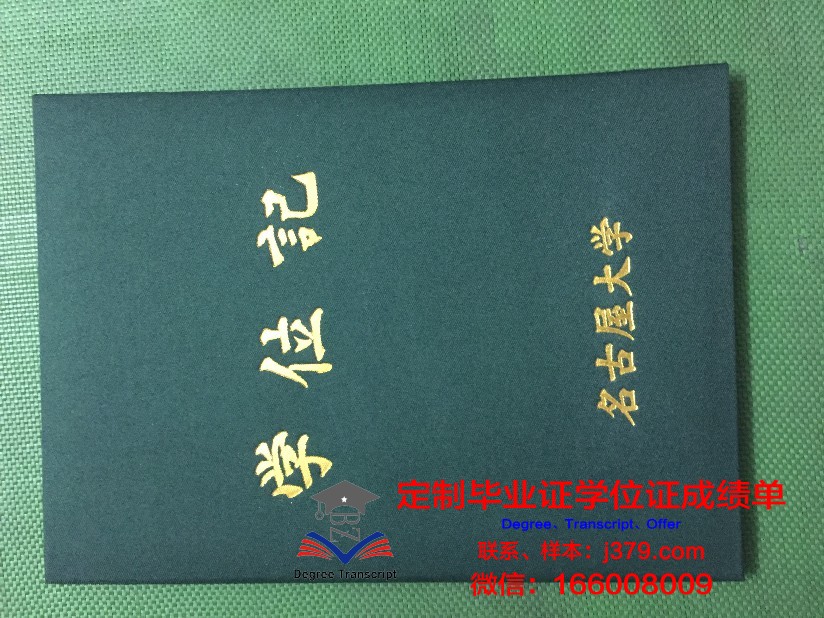 学位記
名古屋大学
BZ
Degree Transcript
定制毕业证学位证成绩单
Degree、Transcript、Offer
联系、样本：j379.com
微信：166008009